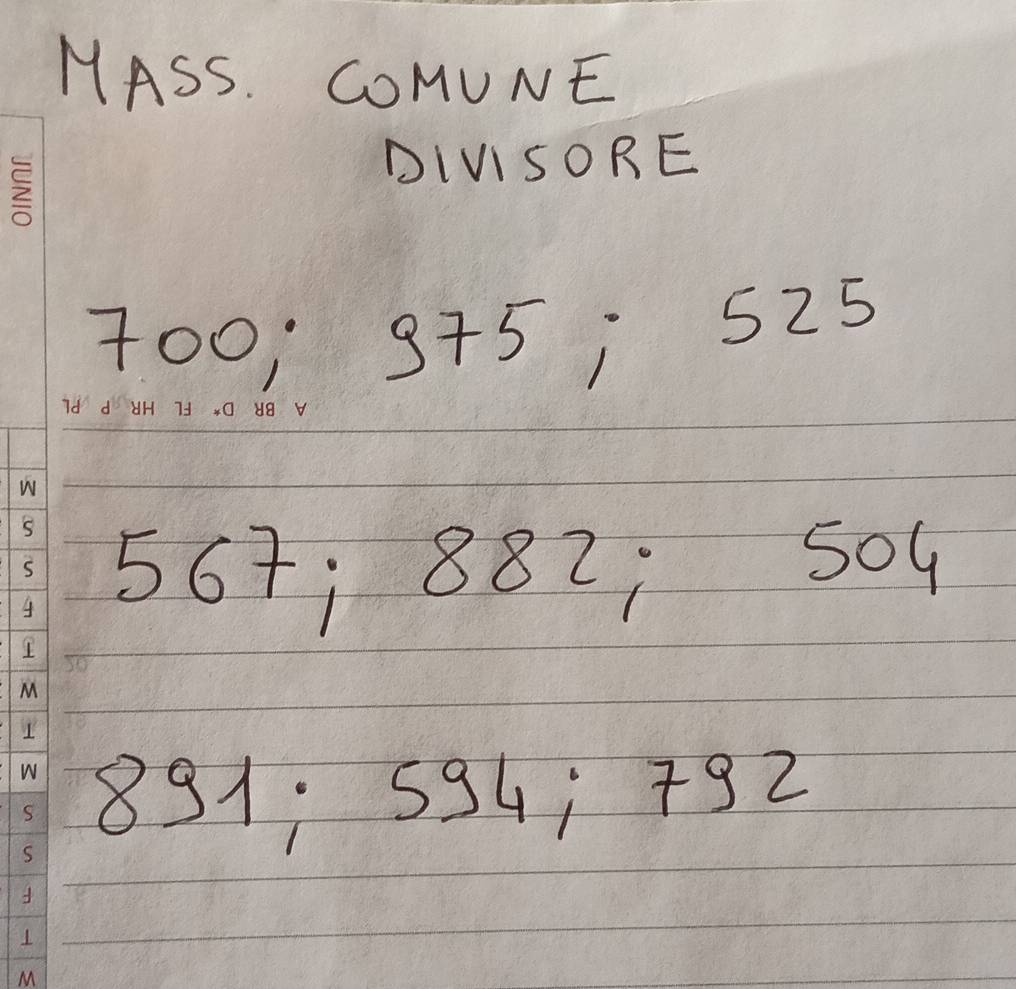 MASS. COMUNE
DIVISORE
JUNIO
700; 975; 525
A BR D* FL HR P PL
567; 882; 504
891; 594; 792
M
S
S
F
T
W
T
M
S
S
F
T
W